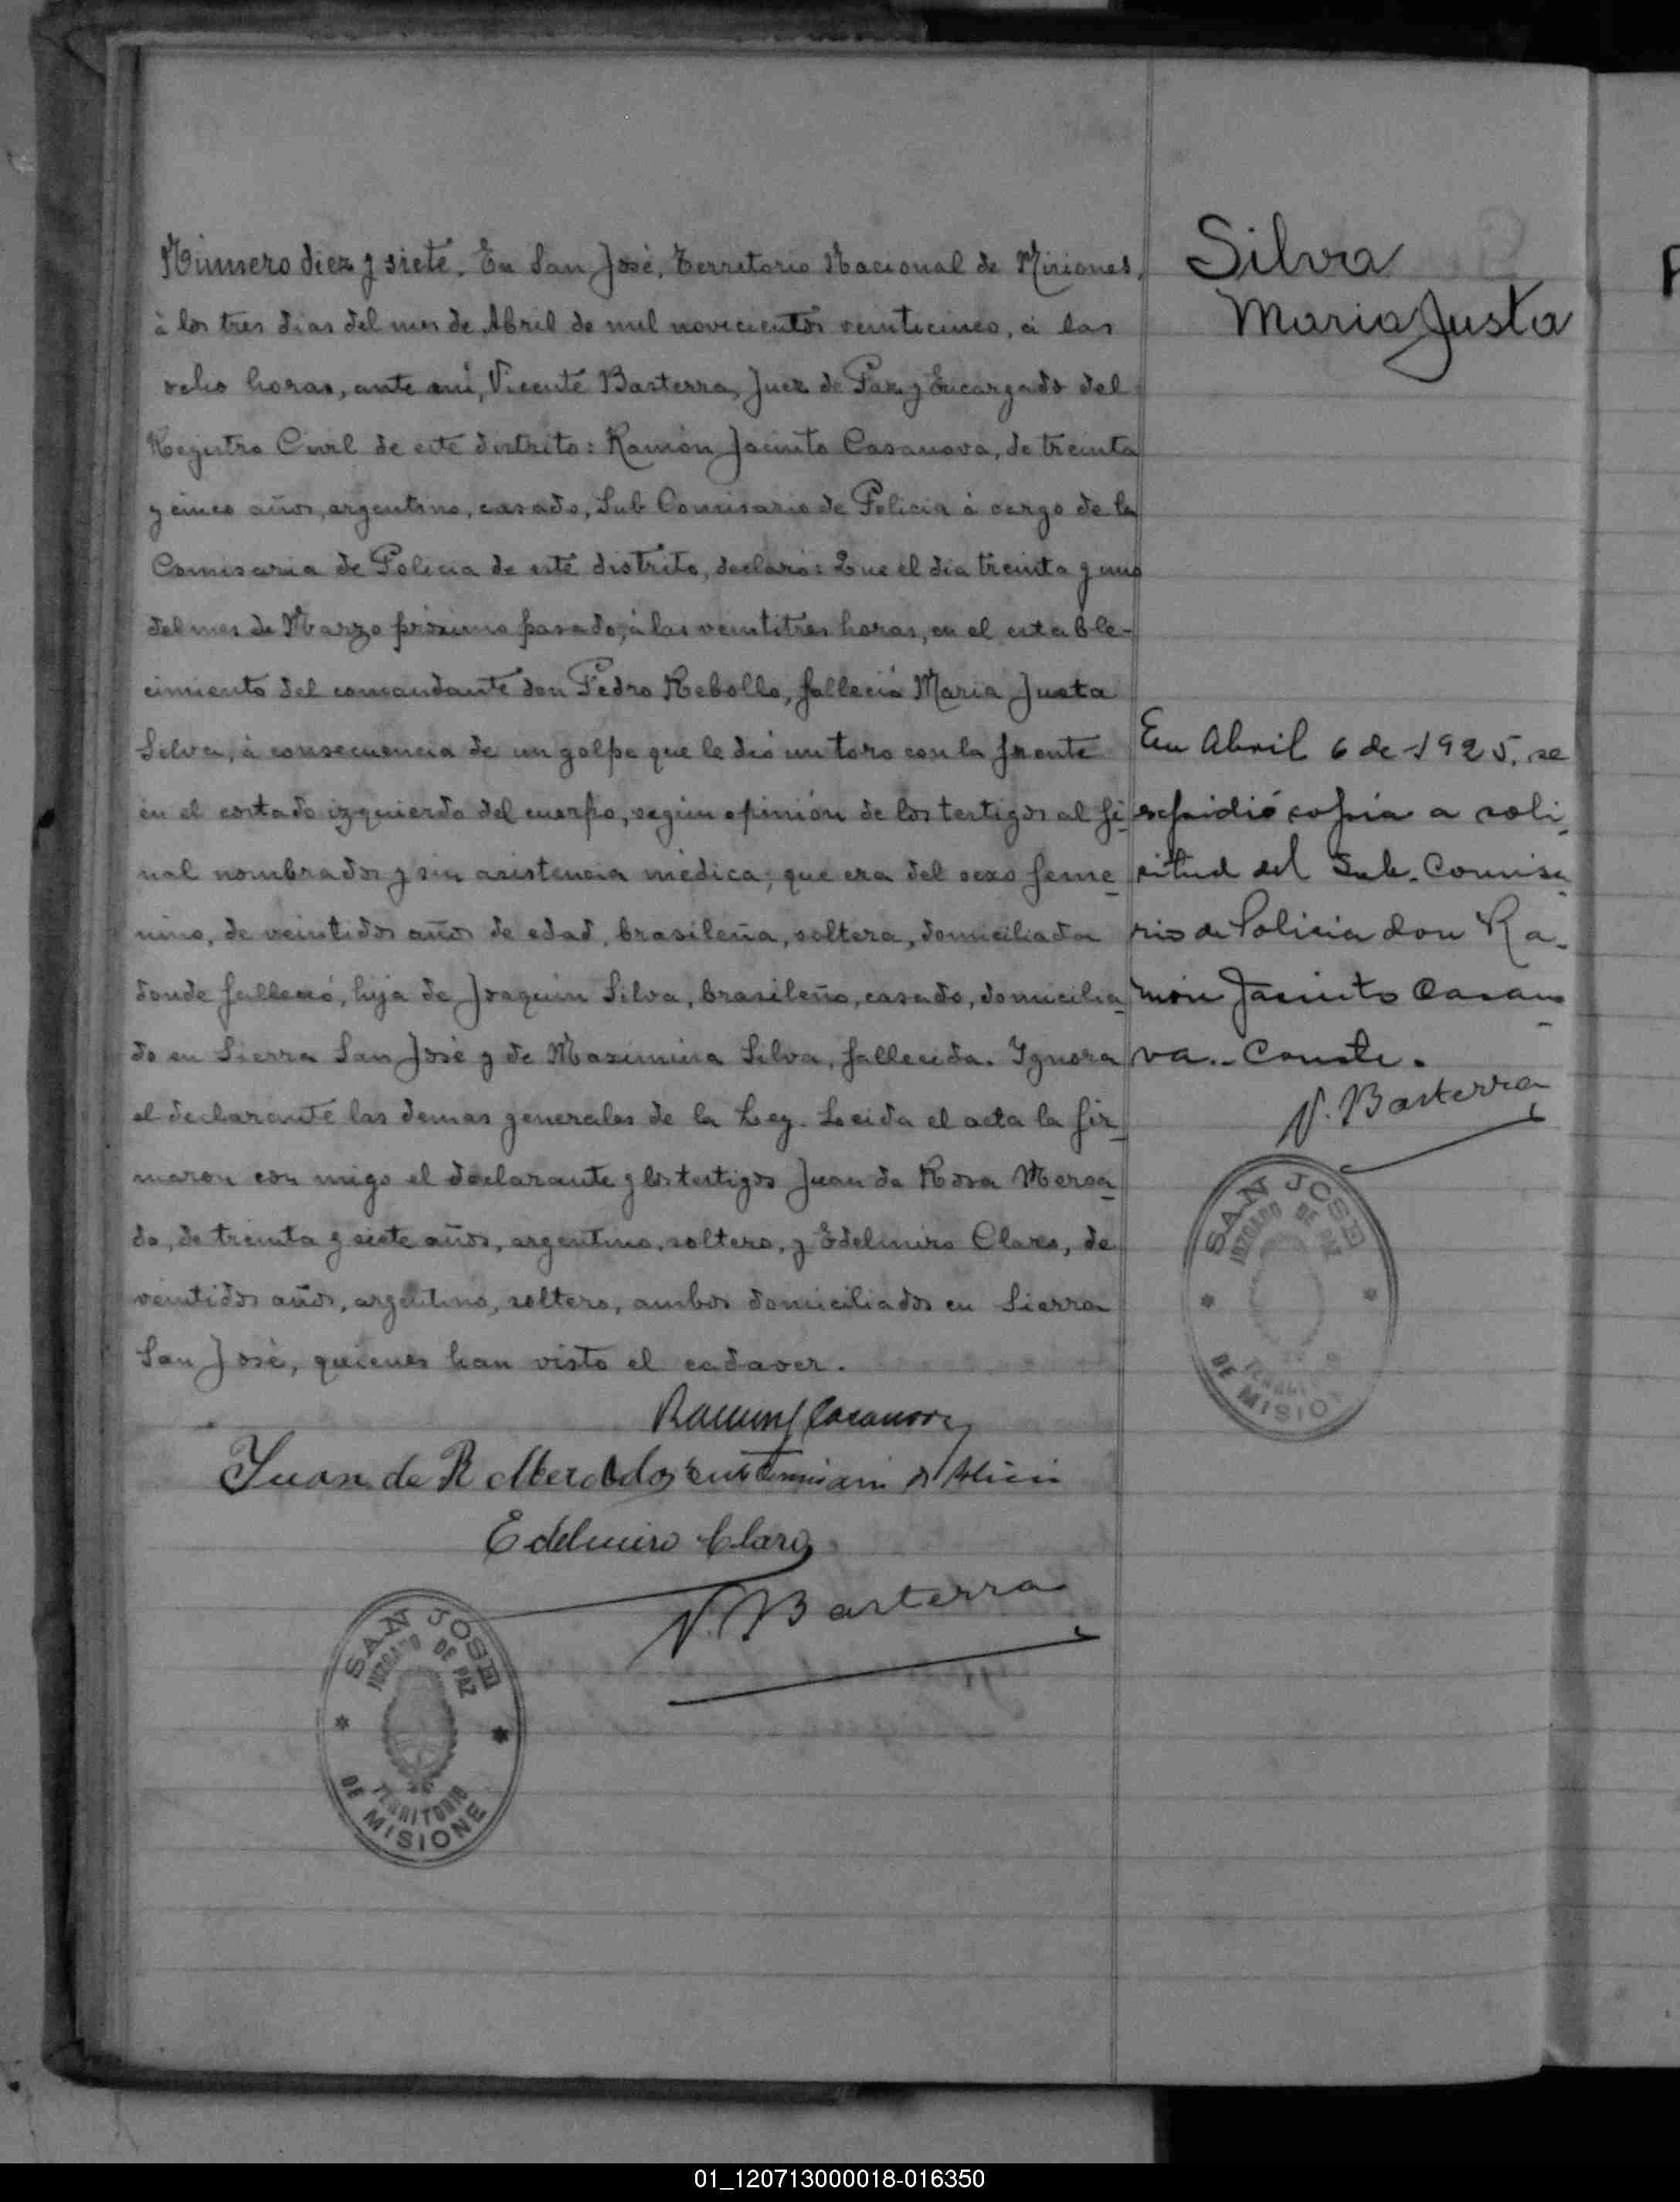 Número diez y siete. En San José, Territorio Nacional de Misiones,
à los tres dias del mes de Abril de mil novecientos veinticinco, à las
ocho horas, ante mi, Vicente Basterra, Juez de Paz y Encargado del
Registro Civil de este distrito: Ramón Jacinto Casanova, de treinta
y cinco años, argentino, casado, Sub Comisario de Policia à cargo de la
Comisaria de Policia de este distrito, declaró: Que el dia treinta y uno
del mes de Marzo próximo pasado, à las veintitres horas, en el estable-
cimiento del comandante don Pedro Rebollo, falleció Maria Justa
Silva, à consecuencia de un golpe que le dió un toro con la frente
en el costado izquierdo del cuerpo, según opinión de los testigos al fi-
nal nombrados y sin asistencia médica; que era del sexo feme-
nino, de veintidos años de edad, brasileña, soltera, domiciliada
donde falleció, hija de Joaquin Silva, brasileño, casado, domicilia-
do en Sierra San José y de Maximina Silva, fallecida. Ignora
el declarante las demas generales de la Ley. Leida el acta la fir-
maron con migo el declarante y los testigos Juan de Rosa Merca-
do, de treinta y siete años, argentino, soltero, y Edelmiro Claro, de
veintidos años, argentino, soltero, ambos domiciliados en Sierra
San José, quienes han visto el cadaver.
Ramon J Casanova
Juan de R Mercado Sub Comisario de Policia
Edelmiro Claro
V. Basterra
SAN JOSE
JUZGADO DE PAZ
TERRITORIO
DE MISIONE
Silva
Maria Justa
En Abril 6 de 1925, se
expidió copia a soli-
citud del Sub-Comisa-
rio de Policia don Ra-
món Jacinto Casano-
va.- Conste.
V. Basterra
SAN JOSE
JUZGADO DE PAZ
TERRITORIO
DE MISION
01_120713000018-016350